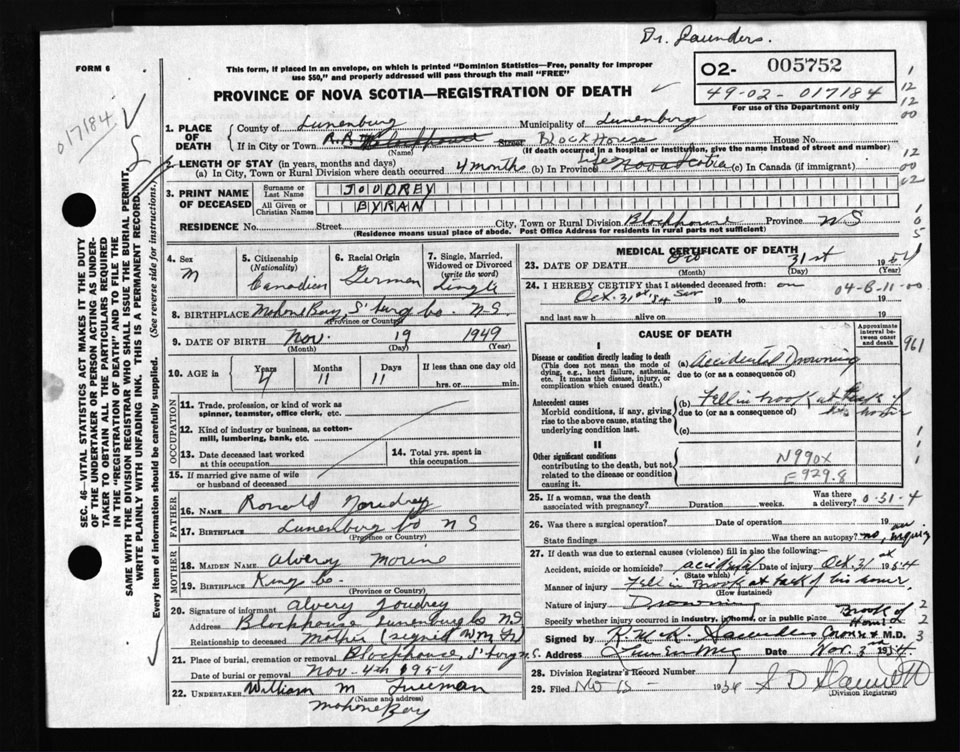 Dr. Saunders.
FORM 6
This form, if placed in an envelope, on which is printed "Dominion Statistics—Free, penalty for improper
use $50," and properly addressed will pass through the mail "FREE"
PROVINCE OF NOVA SCOTIA—REGISTRATION OF DEATH
02- 005752
49-02-017184
For use of the Department only
017184
SEC. 46—VITAL STATISTICS ACT MAKES IT THE DUTY
OF THE UNDERTAKER OR PERSON ACTING AS UNDER-
TAKER TO OBTAIN ALL THE PARTICULARS REQUIRED
IN THE "REGISTRATION OF DEATH" AND TO FILE THE
SAME WITH THE DIVISION REGISTRAR WHO SHALL ISSUE THE BURIAL PERMIT.
WRITE PLAINLY WITH UNFADING INK. THIS IS A PERMANENT RECORD.
Every item of information should be carefully supplied. (See reverse side for instructions.)
1. PLACE OF DEATH
County of Lunenburg Municipality of Lunenburg
If in City or Town R.R. Blockhouse Street Block House House No.
(Name) (If death occurred in a hospital or institution, give the name instead of street and number)
2. LENGTH OF STAY (in years, months and days)
(a) In City, Town or Rural Division where death occurred 4 months (b) In Province Life Nova Scotia (c) In Canada (if immigrant)
3. PRINT NAME OF DECEASED
Surname or Last Name JOUDREY
All Given or Christian Names BYRAN
RESIDENCE No. Street City, Town or Rural Division Blockhouse Province N S
(Residence means usual place of abode. Post Office Address for residents in rural parts not sufficient)
4. Sex
M
5. Citizenship (Nationality)
Canadian
6. Racial Origin
German
7. Single, Married, Widowed or Divorced (write the word)
Single
8. BIRTHPLACE Mahone Bay, L'burg Co. N.S.
(Province or Country)
9. DATE OF BIRTH Nov. 19 1949
(Month) (Day) (Year)
10. AGE in Years 4 Months 11 Days 11 If less than one day old
hrs. or min.
OCCUPATION
11. Trade, profession, or kind of work as
spinner, teamster, office clerk, etc.
12. Kind of industry or business, as cotton-
mill, lumbering, bank, etc.
13. Date deceased last worked
at this occupation
14. Total yrs. spent in
this occupation
15. If married give name of wife
or husband of deceased
FATHER
16. NAME Ronald Joudrey
17. BIRTHPLACE Lunenburg Co N S
(Province or Country)
MOTHER
18. MAIDEN NAME Alvery Morine
19. BIRTHPLACE Kings Co.
(Province or Country)
20. Signature of informant Alvery Joudrey
Address Blockhouse Lunenburg Co N.S.
Relationship to deceased Mother (signed
21. Place of burial, cremation or removal Blockhouse, L'burg N.S.
Date of burial or removal Nov-4th 1954
22. UNDERTAKER William M Freeman
(Name and address)
Mahone Bay
MEDICAL CERTIFICATE OF DEATH
23. DATE OF DEATH Oct 31st 1954
(Month) (Day) (Year)
24. I HEREBY CERTIFY that I attended deceased from: on
Oct. 31st 54 19 to 19
04-6-11-00
and last saw h alive on 19
CAUSE OF DEATH
Approximate interval between onset and death
I
Disease or condition directly leading to death
(This does not mean the mode of dying, e.g., heart failure, asthenia, etc. It means the disease, injury, or complication which caused death.)
(a) Accidental Drowning
due to (or as a consequence of)
961
Antecedent causes
Morbid conditions, if any, giving rise to the above cause, stating the underlying condition last.
(b) Fell in brook at back of his home
due to (or as a consequence of)
(c)
II
Other significant conditions
contributing to the death, but not related to the disease or condition causing it.
N990X
E929.8
25. If a woman, was the death
associated with pregnancy? Duration weeks. Was there
a delivery?
0-31-4
26. Was there a surgical operation? Date of operation 19
State findings Was there an autopsy? no, an inquiry
27. If death was due to external causes (violence) fill in also the following:—
Accident, suicide or homicide? accident Date of injury Oct. 31st 1954
(State which)
Manner of injury Fell in Brook at back of his home
(How sustained)
Nature of injury Drowning
Specify whether injury occurred in industry, in home, or in public place
Signed by Saunders Coroner M.D.
Address Date Nov. 3 1954
28. Division Registrar's Record Number
29. Filed Nov 15 - 1954
(Division Registrar)